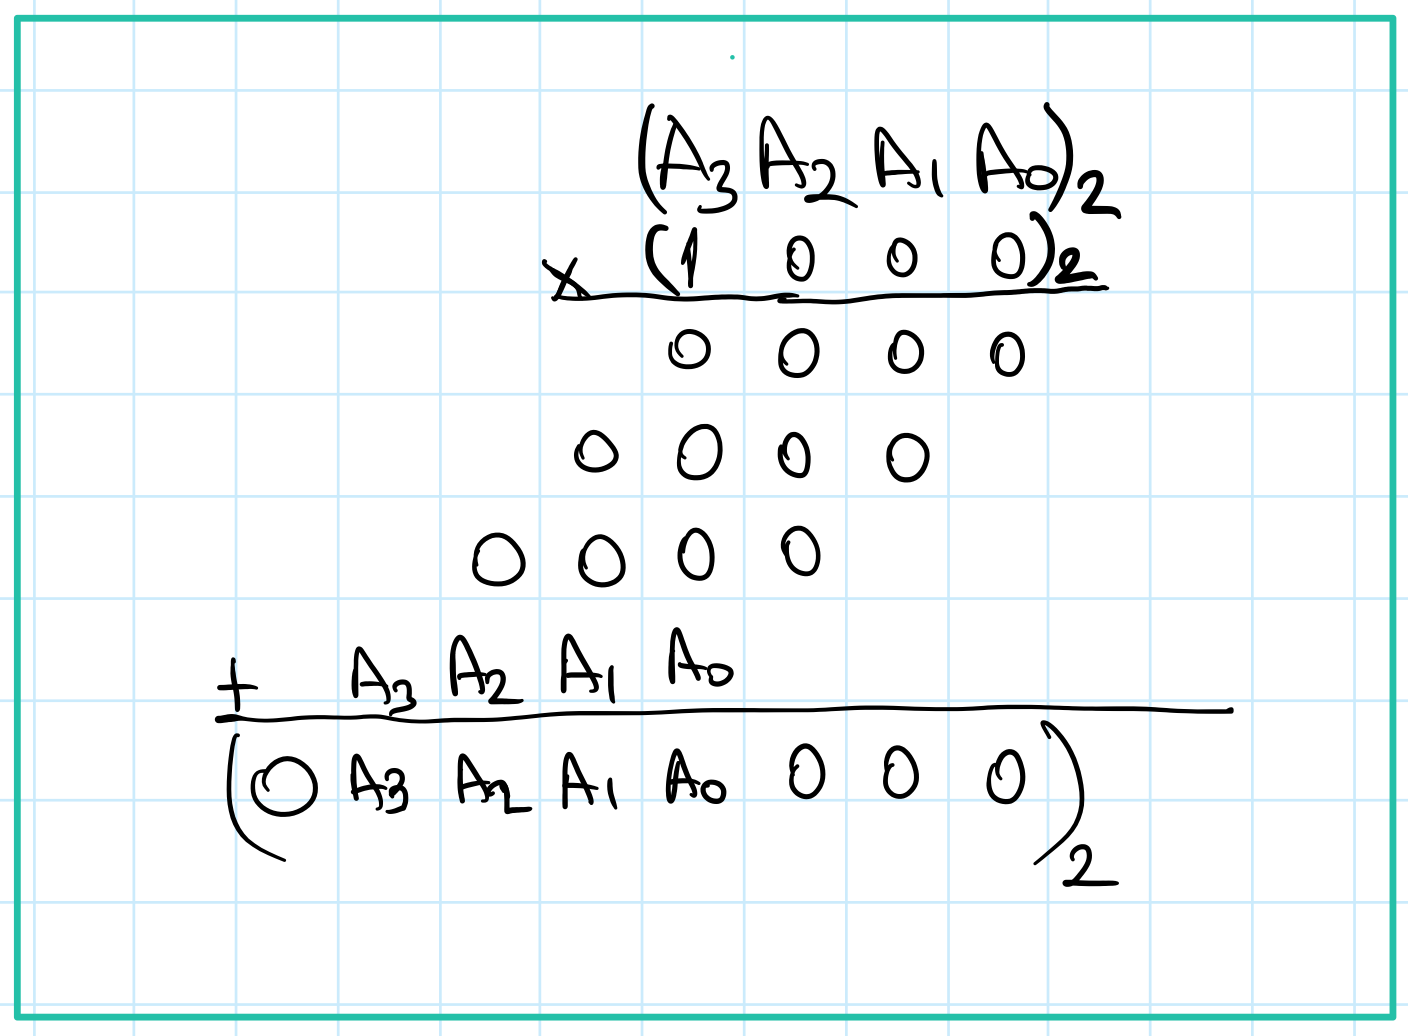 (A₃ A₂ A₁ A₀)₂
× (1 0 0 0)₂
0 0 0 0
0 0 0 0
0 0 0 0
+ A₃ A₂ A₁ A₀
(0 A₃ A₂ A₁ A₀ 0 0 0)₂